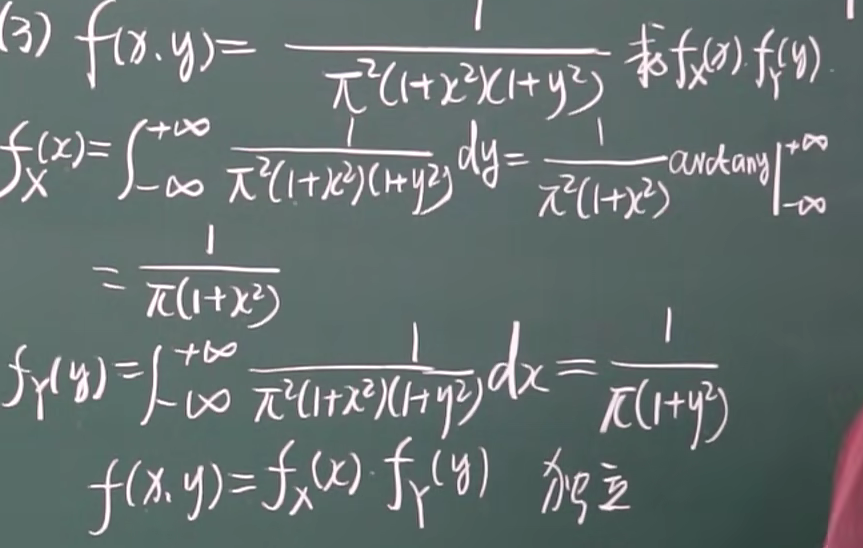 (3) f(x.y)= 1/(π²(1+x²)(1+y²)) 求f_X(x).f_Y(y).
f_X(x)=∫_{-∞}^{+∞} 1/(π²(1+x²)(1+y²)) dy= 1/(π²(1+x²)) arctany|_{-∞}^{+∞}
= 1/(π(1+x²))
f_Y(y)=∫_{-∞}^{+∞} 1/(π²(1+x²)(1+y²)) dx= 1/(π(1+y²))
f(x.y)=f_X(x)·f_Y(y) 独立